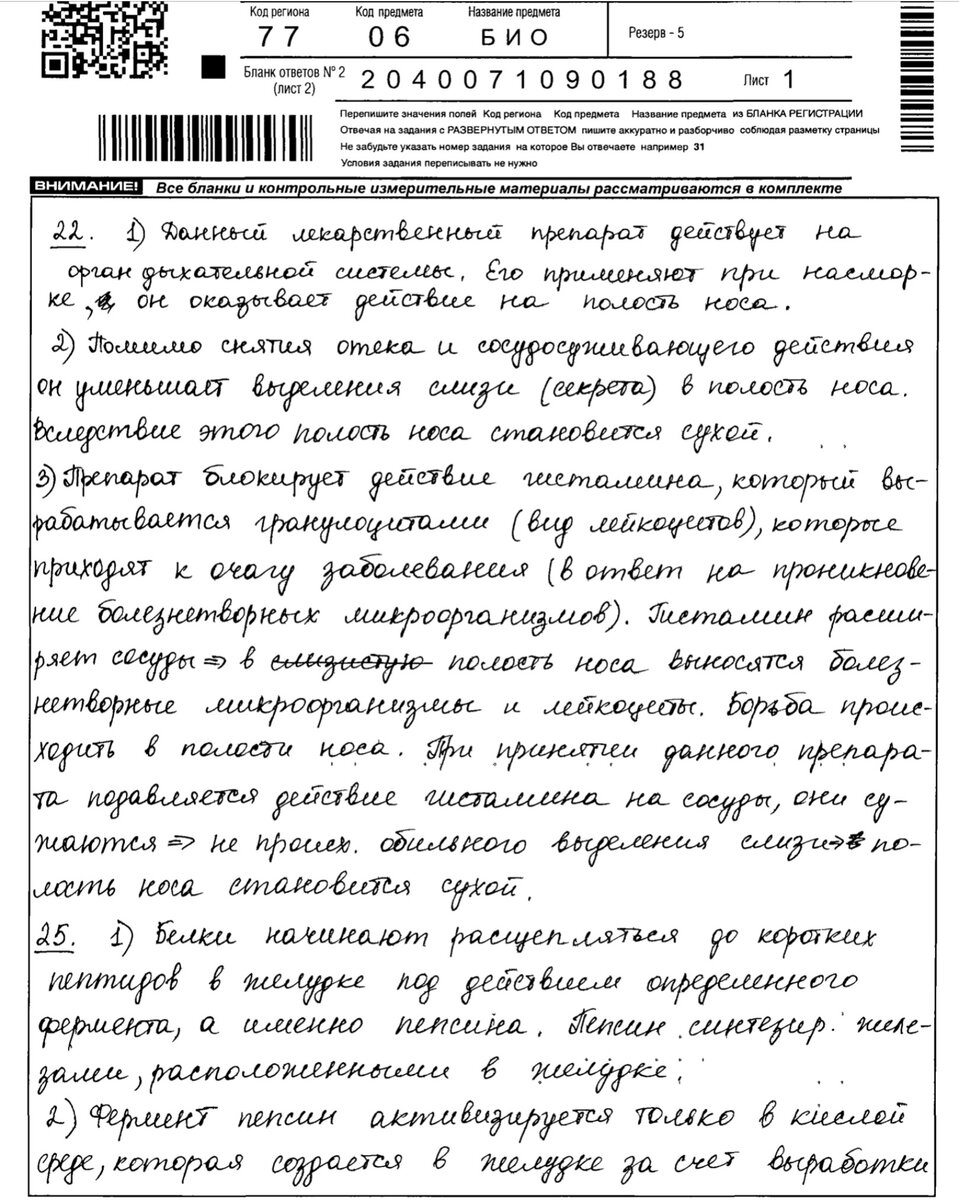 Код региона Код предмета Название предмета
77 06 БИО Резерв - 5
Бланк ответов № 2 2040071090188 Лист 1
(лист 2)
Перепишите значения полей Код региона Код предмета Название предмета из БЛАНКА РЕГИСТРАЦИИ
Отвечая на задания с РАЗВЕРНУТЫМ ОТВЕТОМ пишите аккуратно и разборчиво соблюдая разметку страницы
Не забудьте указать номер задания на которое Вы отвечаете например 31
Условия задания переписывать не нужно
ВНИМАНИЕ! Все бланки и контрольные измерительные материалы рассматриваются в комплекте
22. 1) Данный лекарственный препарат действует на
орган дыхательной системы. Его применяют при насмор-
ке, он оказывает действие на полость носа.
2) Помимо снятия отека и сосудосуживающего действия
он уменьшает выделения слизи (секрета) в полость носа.
Вследствие этого полость носа становится сухой.
3) Препарат блокирует действие гистамина, который вы-
рабатывается гранулоцитами (вид лейкоцетов), которые
приходят к очагу заболевания (в ответ на проникнове-
ние болезнетворных микроорганизмов). Гистамин расши-
ряет сосуды => в слизистую полость носа выносятся болез-
нетворные микроорганизмы и лейкоцеты. Борьба проис-
ходить в полости носа. При принятии данного препара-
та подавляется действие гистамина на сосуды, они су-
жаются => не происх. обильного выделения слизи => по-
лость носа становится сухой.
25. 1) Белки начинают расщепляться до коротких
пептидов в желудке под действием определенного
фермента, а именно пепсина. Пепсин синтезир. желе-
зами, расположенными в желудке.
2) Фермент пепсин активизируется только в кислой
среде, которая создается в желудке за счет выработки